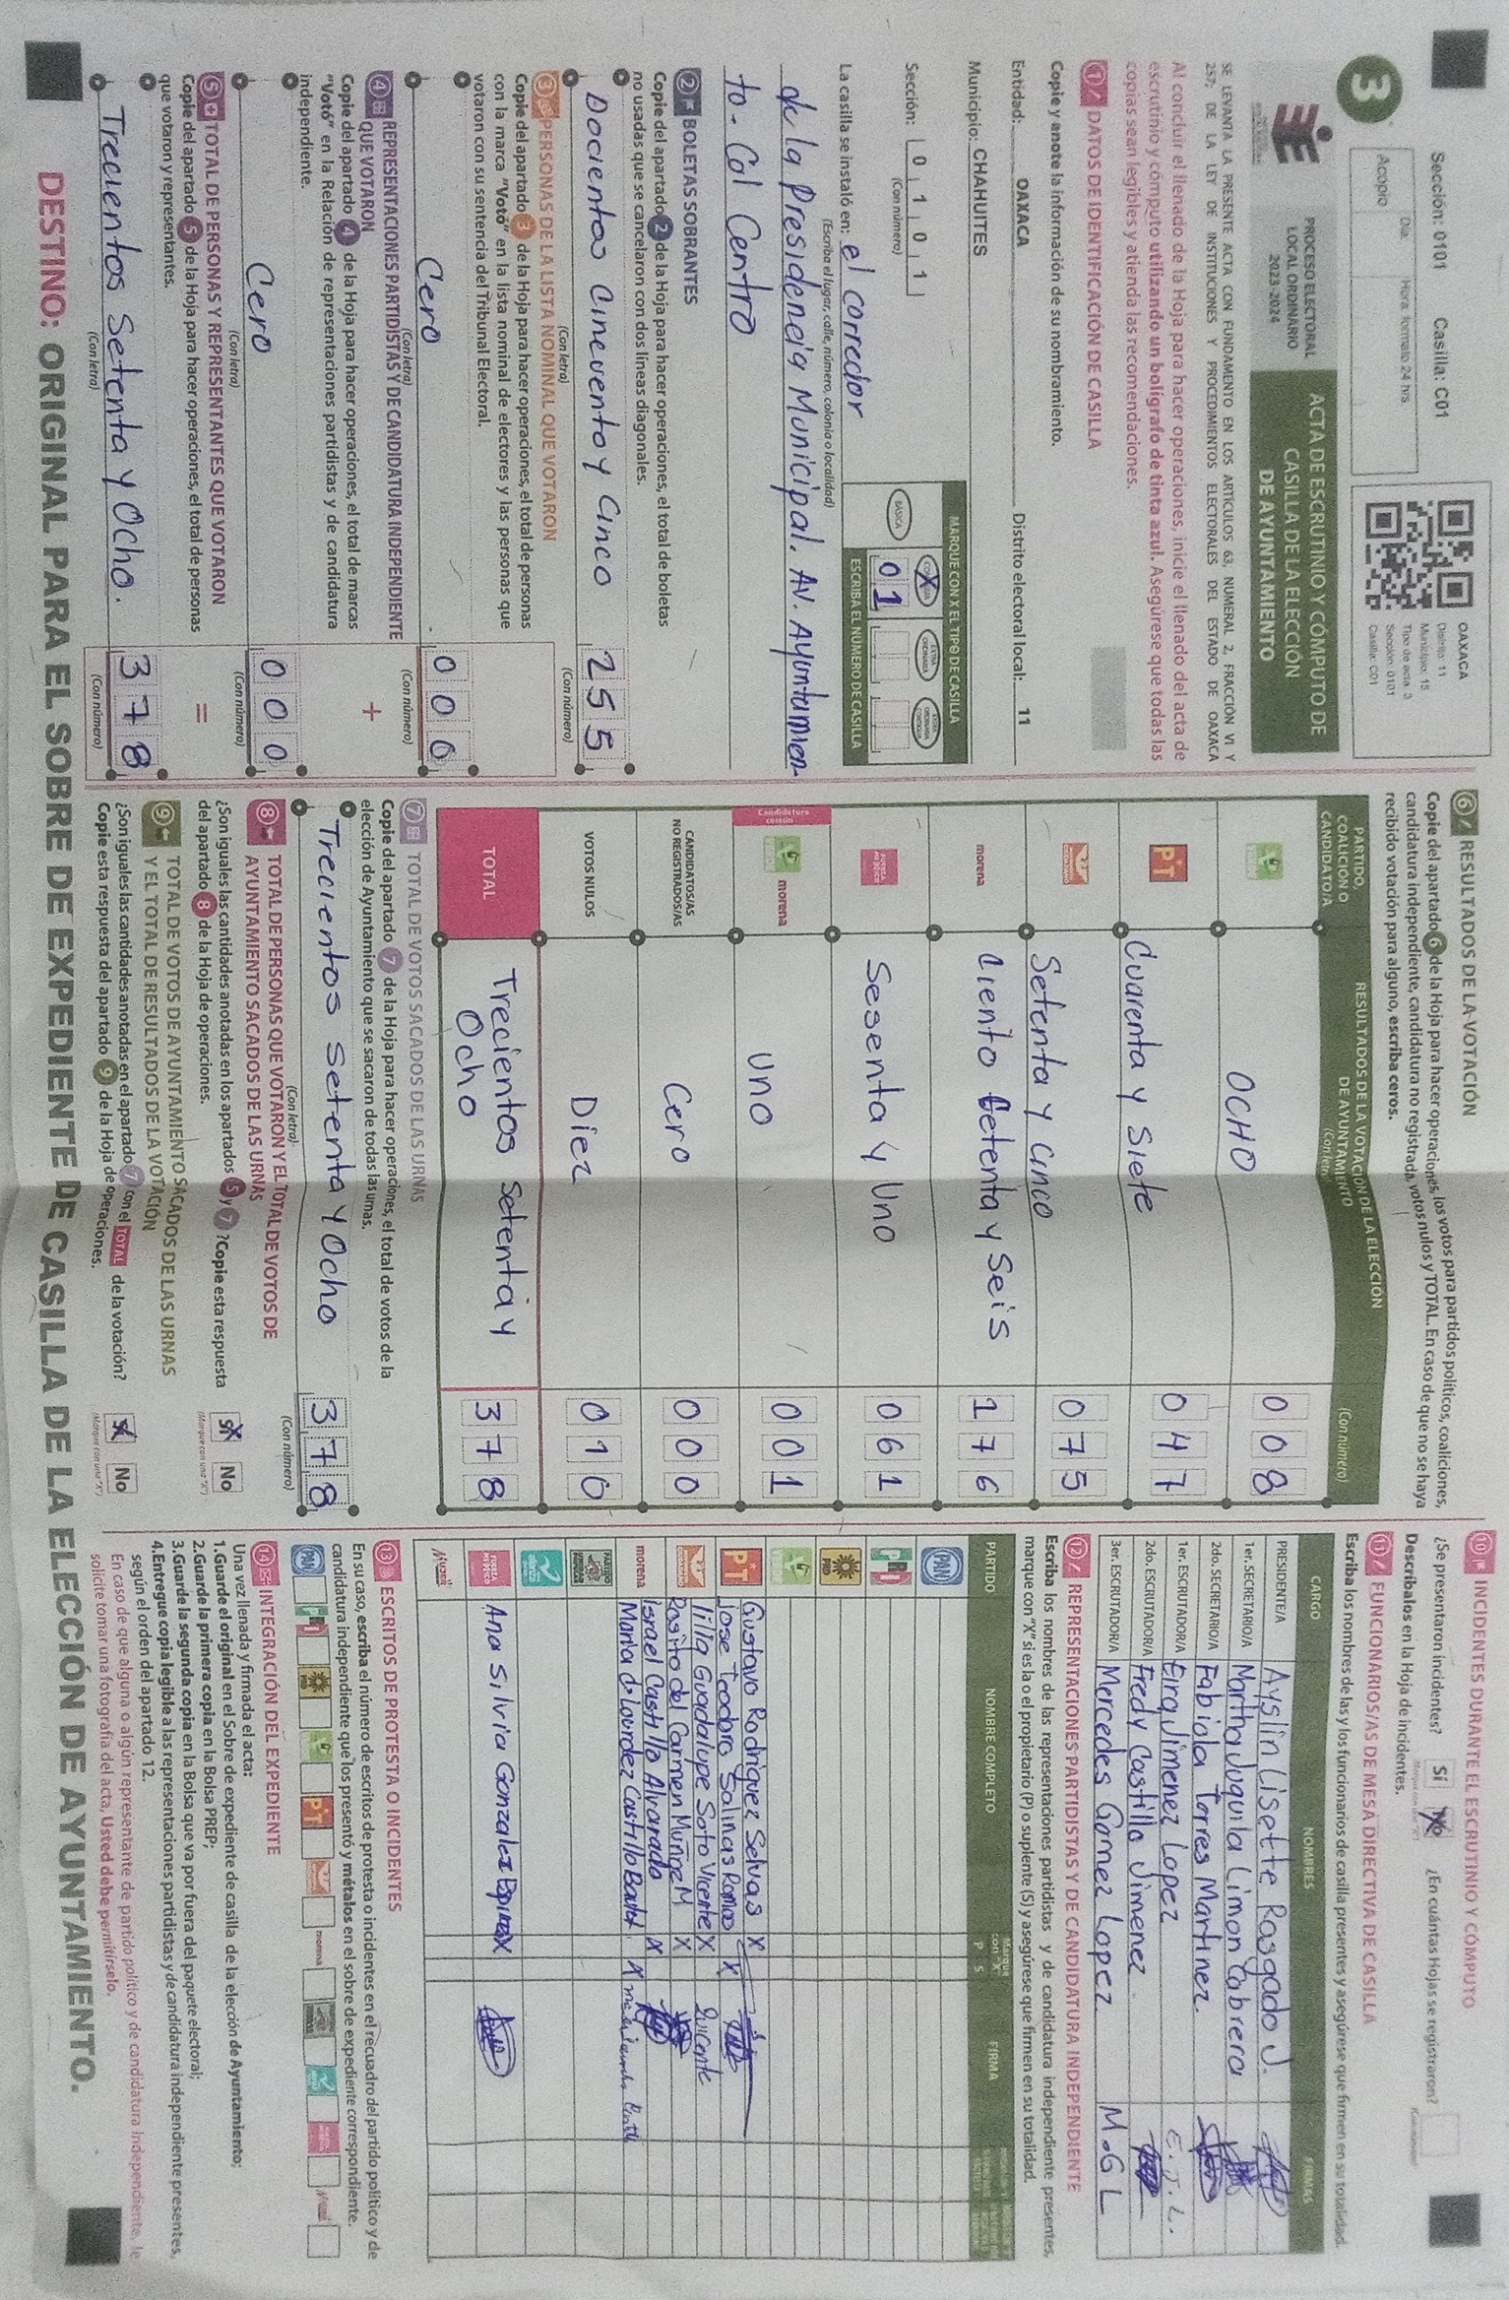 Sección: 0101 Casilla: C01
Día: Hora: formato 24 hrs.
Acopio
OAXACA
Distrito: 11
Municipio: 15
Tipo de acta: 3
Sección: 0101
Casilla: C01
3
PROCESO ELECTORAL
LOCAL ORDINARIO
2023-2024
ACTA DE ESCRUTINIO Y CÓMPUTO DE
CASILLA DE LA ELECCIÓN
DE AYUNTAMIENTO
SE LEVANTA LA PRESENTE ACTA CON FUNDAMENTO EN LOS ARTÍCULOS 63, NUMERAL 2, FRACCIÓN VI Y
257; DE LA LEY DE INSTITUCIONES Y PROCEDIMIENTOS ELECTORALES DEL ESTADO DE OAXACA
Al concluir el llenado de la Hoja para hacer operaciones, inicie el llenado del acta de
escrutinio y cómputo utilizando un bolígrafo de tinta azul. Asegúrese que todas las
copias sean legibles y atienda las recomendaciones.
1 DATOS DE IDENTIFICACIÓN DE CASILLA
Copie y anote la información de su nombramiento.
Entidad: OAXACA Distrito electoral local: 11
Municipio: CHAHUITES
Sección: 0 1 0 1
(Con número)
MARQUE CON X EL TIPO DE CASILLA
BÁSICA X
0 1
ESCRIBA EL NÚMERO DE CASILLA
La casilla se instaló en: el corredor
(Escriba el lugar, calle, número, colonia o localidad)
de la Presidencia Municipal. AV. Ayuntamien-
to. Col Centro
2 BOLETAS SOBRANTES
Copie del apartado 2 de la Hoja para hacer operaciones, el total de boletas
no usadas que se cancelaron con dos líneas diagonales.
Docientos Cincuenta y Cinco 2 5 5
(Con letra) (Con número)
3 PERSONAS DE LA LISTA NOMINAL QUE VOTARON
Copie del apartado 3 de la Hoja para hacer operaciones, el total de personas
con la marca "Votó" en la lista nominal de electores y las personas que
votaron con su sentencia del Tribunal Electoral.
Cero 0 0 0
(Con letra) (Con número)
4 REPRESENTACIONES PARTIDISTAS Y DE CANDIDATURA INDEPENDIENTE
QUE VOTARON
+
Copie del apartado 4 de la Hoja para hacer operaciones, el total de marcas
"Votó" en la Relación de representaciones partidistas y de candidatura
independiente.
Cero 0 0 0
(Con letra) (Con número)
5 TOTAL DE PERSONAS Y REPRESENTANTES QUE VOTARON
=
Copie del apartado 5 de la Hoja para hacer operaciones, el total de personas
que votaron y representantes.
Trecientos Setenta y Ocho. 3 7 8
(Con letra) (Con número)
6 RESULTADOS DE LA VOTACIÓN
Copie del apartado 6 de la Hoja para hacer operaciones, los votos para partidos políticos, coaliciones,
candidatura independiente, candidatura no registrada, votos nulos y TOTAL. En caso de que no se haya
recibido votación para alguno, escriba ceros.
PARTIDO,
COALICIÓN O
CANDIDATO/A
RESULTADOS DE LA VOTACIÓN DE LA ELECCIÓN
DE AYUNTAMIENTO
(Con letra) (Con número)
OCHO 0 0 8
PT Cuarenta y Siete 0 4 7
Setenta y Cinco 0 7 5
morena Ciento Setenta y Seis 1 7 6
FUERZA MÉXICO Sesenta y Uno 0 6 1
Candidatura común
morena Uno 0 0 1
CANDIDATOS/AS
NO REGISTRADOS/AS Cero 0 0 0
VOTOS NULOS Diez 0 1 0
TOTAL Trecientos Setenta y
Ocho 3 7 8
7 TOTAL DE VOTOS SACADOS DE LAS URNAS
Copie del apartado 7 de la Hoja para hacer operaciones, el total de votos de la
elección de Ayuntamiento que se sacaron de todas las urnas.
Trecientos Setenta y Ocho 3 7 8
(Con letra) (Con número)
8 TOTAL DE PERSONAS QUE VOTARON Y EL TOTAL DE VOTOS DE
AYUNTAMIENTO SACADOS DE LAS URNAS
¿Son iguales las cantidades anotadas en los apartados 5 y 7 ? Copie esta respuesta
del apartado 8 de la Hoja de operaciones.
Sí No
(Marque con una "X")
9 TOTAL DE VOTOS DE AYUNTAMIENTO SACADOS DE LAS URNAS
Y EL TOTAL DE RESULTADOS DE LA VOTACIÓN
¿Son iguales las cantidades anotadas en el apartado 7 con el TOTAL de la votación?
Copie esta respuesta del apartado 9 de la Hoja de operaciones.
Sí No
(Marque con una "X")
10 INCIDENTES DURANTE EL ESCRUTINIO Y CÓMPUTO
¿Se presentaron incidentes? Sí No ¿En cuántas Hojas se registraron?
Descríbalos en la Hoja de incidentes.
11 FUNCIONARIOS/AS DE MESA DIRECTIVA DE CASILLA
Escriba los nombres de las y los funcionarios de casilla presentes y asegúrese que firmen en su totalidad.
CARGO NOMBRES FIRMAS
PRESIDENTE/A Ayslin Lisette Rasgado J.
1er. SECRETARIO/A Martha Juquila Limon Cabrera
2do. SECRETARIO/A Fabiola Torres Martinez.
1er. ESCRUTADOR/A Eira Jimenez Lopez E. J. L.
2do. ESCRUTADOR/A Fredy Castillo Jimenez.
3er. ESCRUTADOR/A Mercedes Gomez Lopez M.G L
12 REPRESENTACIONES PARTIDISTAS Y DE CANDIDATURA INDEPENDIENTE
Escriba los nombres de las representaciones partidistas y de candidatura independiente presentes,
marque con "X" si es la o el propietario (P) o suplente (S) y asegúrese que firmen en su totalidad.
PARTIDO NOMBRE COMPLETO Marque con "X" P S FIRMA
PAN
PRI
PRD
Gustavo Rodriguez Selvas X
PT Jose Teodoro Salinas Ramos X
lilia Guadalupe Soto Vicente X
Rosito del Carmen Munge M X
morena Israel Castillo Alvarado X
Maria d Lourdez Castillo Bautst X
FUERZA MÉXICO Ana Silvia Gonzalez Espinoza X
13 ESCRITOS DE PROTESTA O INCIDENTES
En su caso, escriba el número de escritos de protesta o incidentes en el recuadro del partido político y de
candidatura independiente que los presentó y métalos en el sobre de expediente correspondiente.
PAN PRI PRD PT morena
14 INTEGRACIÓN DEL EXPEDIENTE
Una vez llenada y firmada el acta:
1.Guarde el original en el Sobre de expediente de casilla de la elección de Ayuntamiento;
2.Guarde la primera copia en la Bolsa PREP;
3.Guarde la segunda copia en la Bolsa que va por fuera del paquete electoral;
4.Entregue copia legible a las representaciones partidistas y de candidatura independiente presentes,
según el orden del apartado 12.
En caso de que alguna o algún representante de partido político y de candidatura independiente, le
solicite tomar una fotografía del acta, Usted debe permitírselo.
DESTINO: ORIGINAL PARA EL SOBRE DE EXPEDIENTE DE CASILLA DE LA ELECCIÓN DE AYUNTAMIENTO.